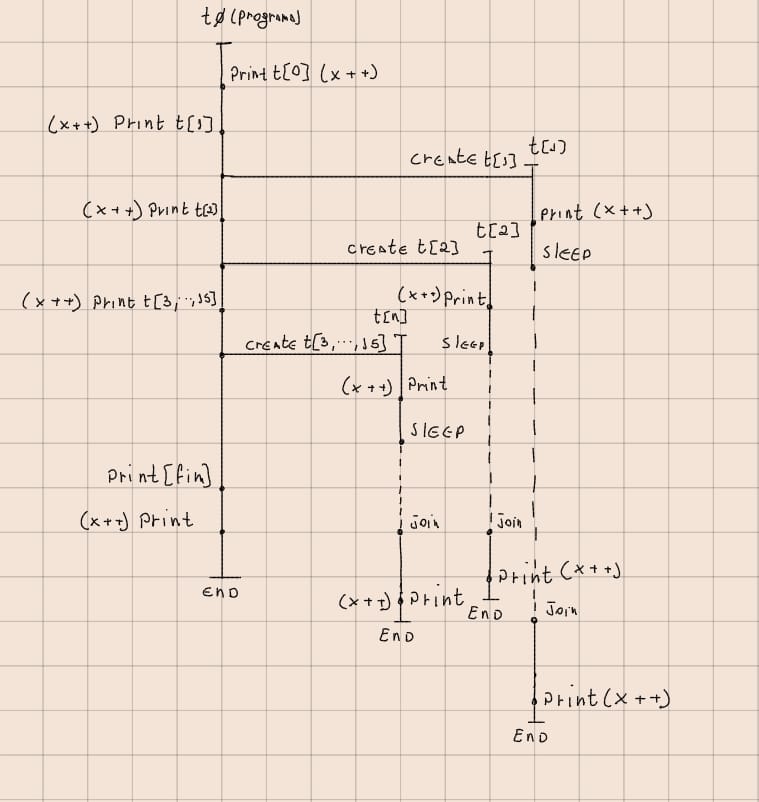 tø (programa)
Print t[0] (x++)
(x++) Print t[1]
create t[1]
t[1]
(x++) Print t[2]
Print (x++)
t[2]
create t[2]
SLEEP
(x++) Print t[3,...,15]
(x++) Print
t[n]
create t[3,...,15]
SLEEP
(x++) Print
SLEEP
Print [fin]
(x++) Print
Join
Join
END
Print (x++)
(x++) Print
END
Join
END
Print (x++)
END